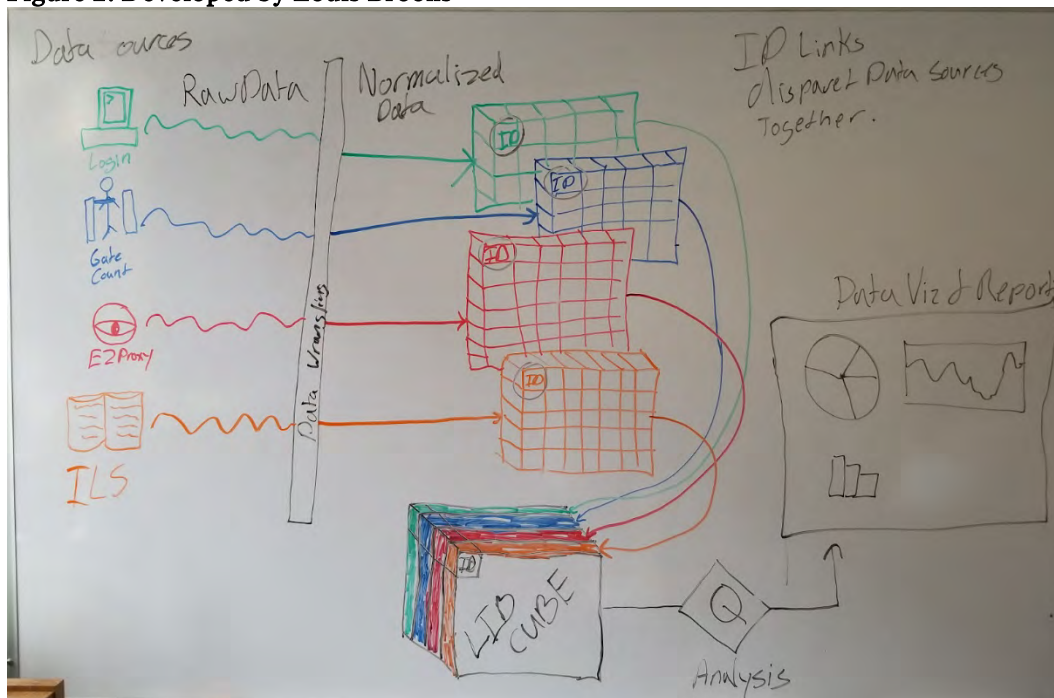 Figure 2: Developed by Louis Brooks
Data ources
RawData
Normalized
Data
ID Links
disparet Data Sources
Together.
Login
Gate
Count
EZProxy
ILS
Data Wrangling
ID
ID
ID
ID
Data Viz & Report
ID
LIB
CUBE
Q
Analysis